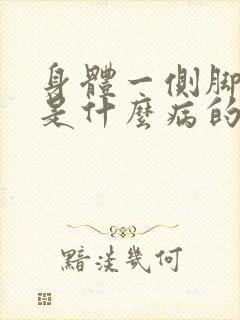 身體一側脚
是什麽病的
黯淡幾何